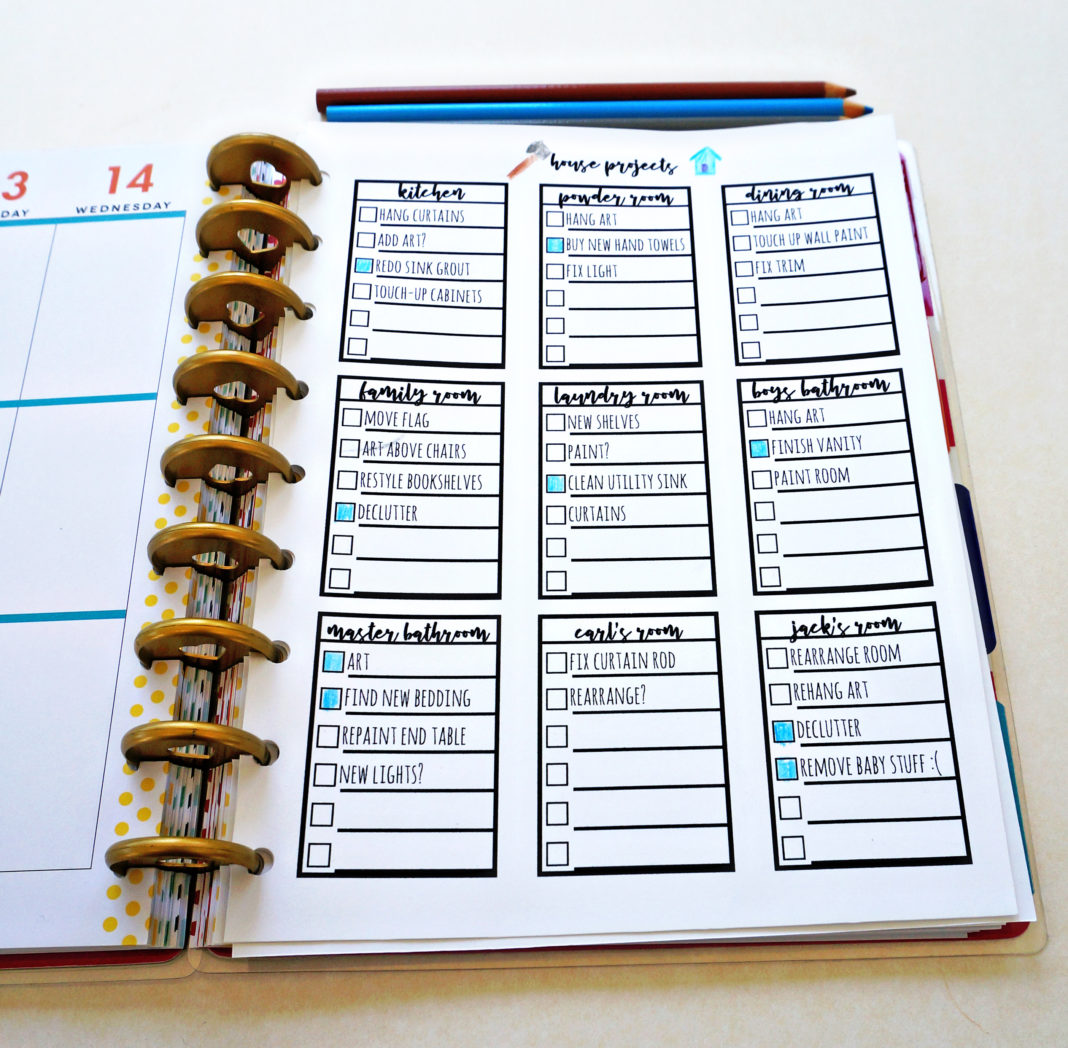 3
14
DAY
WEDNESDAY
house projects
kitchen
HANG CURTAINS
ADD ART?
REDO SINK GROUT
TOUCH-UP CABINETS
powder room
HANG ART
BUY NEW HAND TOWELS
FIX LIGHT
dining room
HANG ART
TOUCH UP WALL PAINT
FIX TRIM
family room
MOVE FLAG
ART ABOVE CHAIRS
RESTYLE BOOKSHELVES
DECLUTTER
laundry room
NEW SHELVES
PAINT?
CLEAN UTILITY SINK
CURTAINS
boys bathroom
HANG ART
FINISH VANITY
PAINT ROOM
master bathroom
ART
FIND NEW BEDDING
REPAINT END TABLE
NEW LIGHTS?
carl's room
FIX CURTAIN ROD
REARRANGE?
jack's room
REARRANGE ROOM
REHANG ART
DECLUTTER
REMOVE BABY STUFF :(